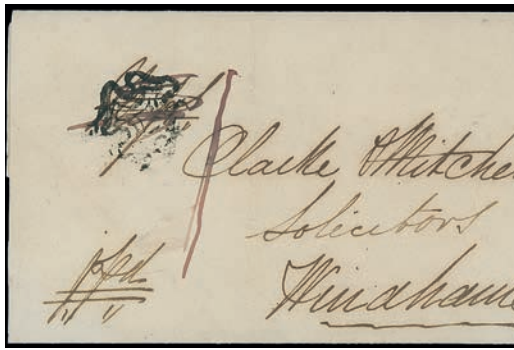 Clarke & Mitche
Solicitors
Windham
ppd